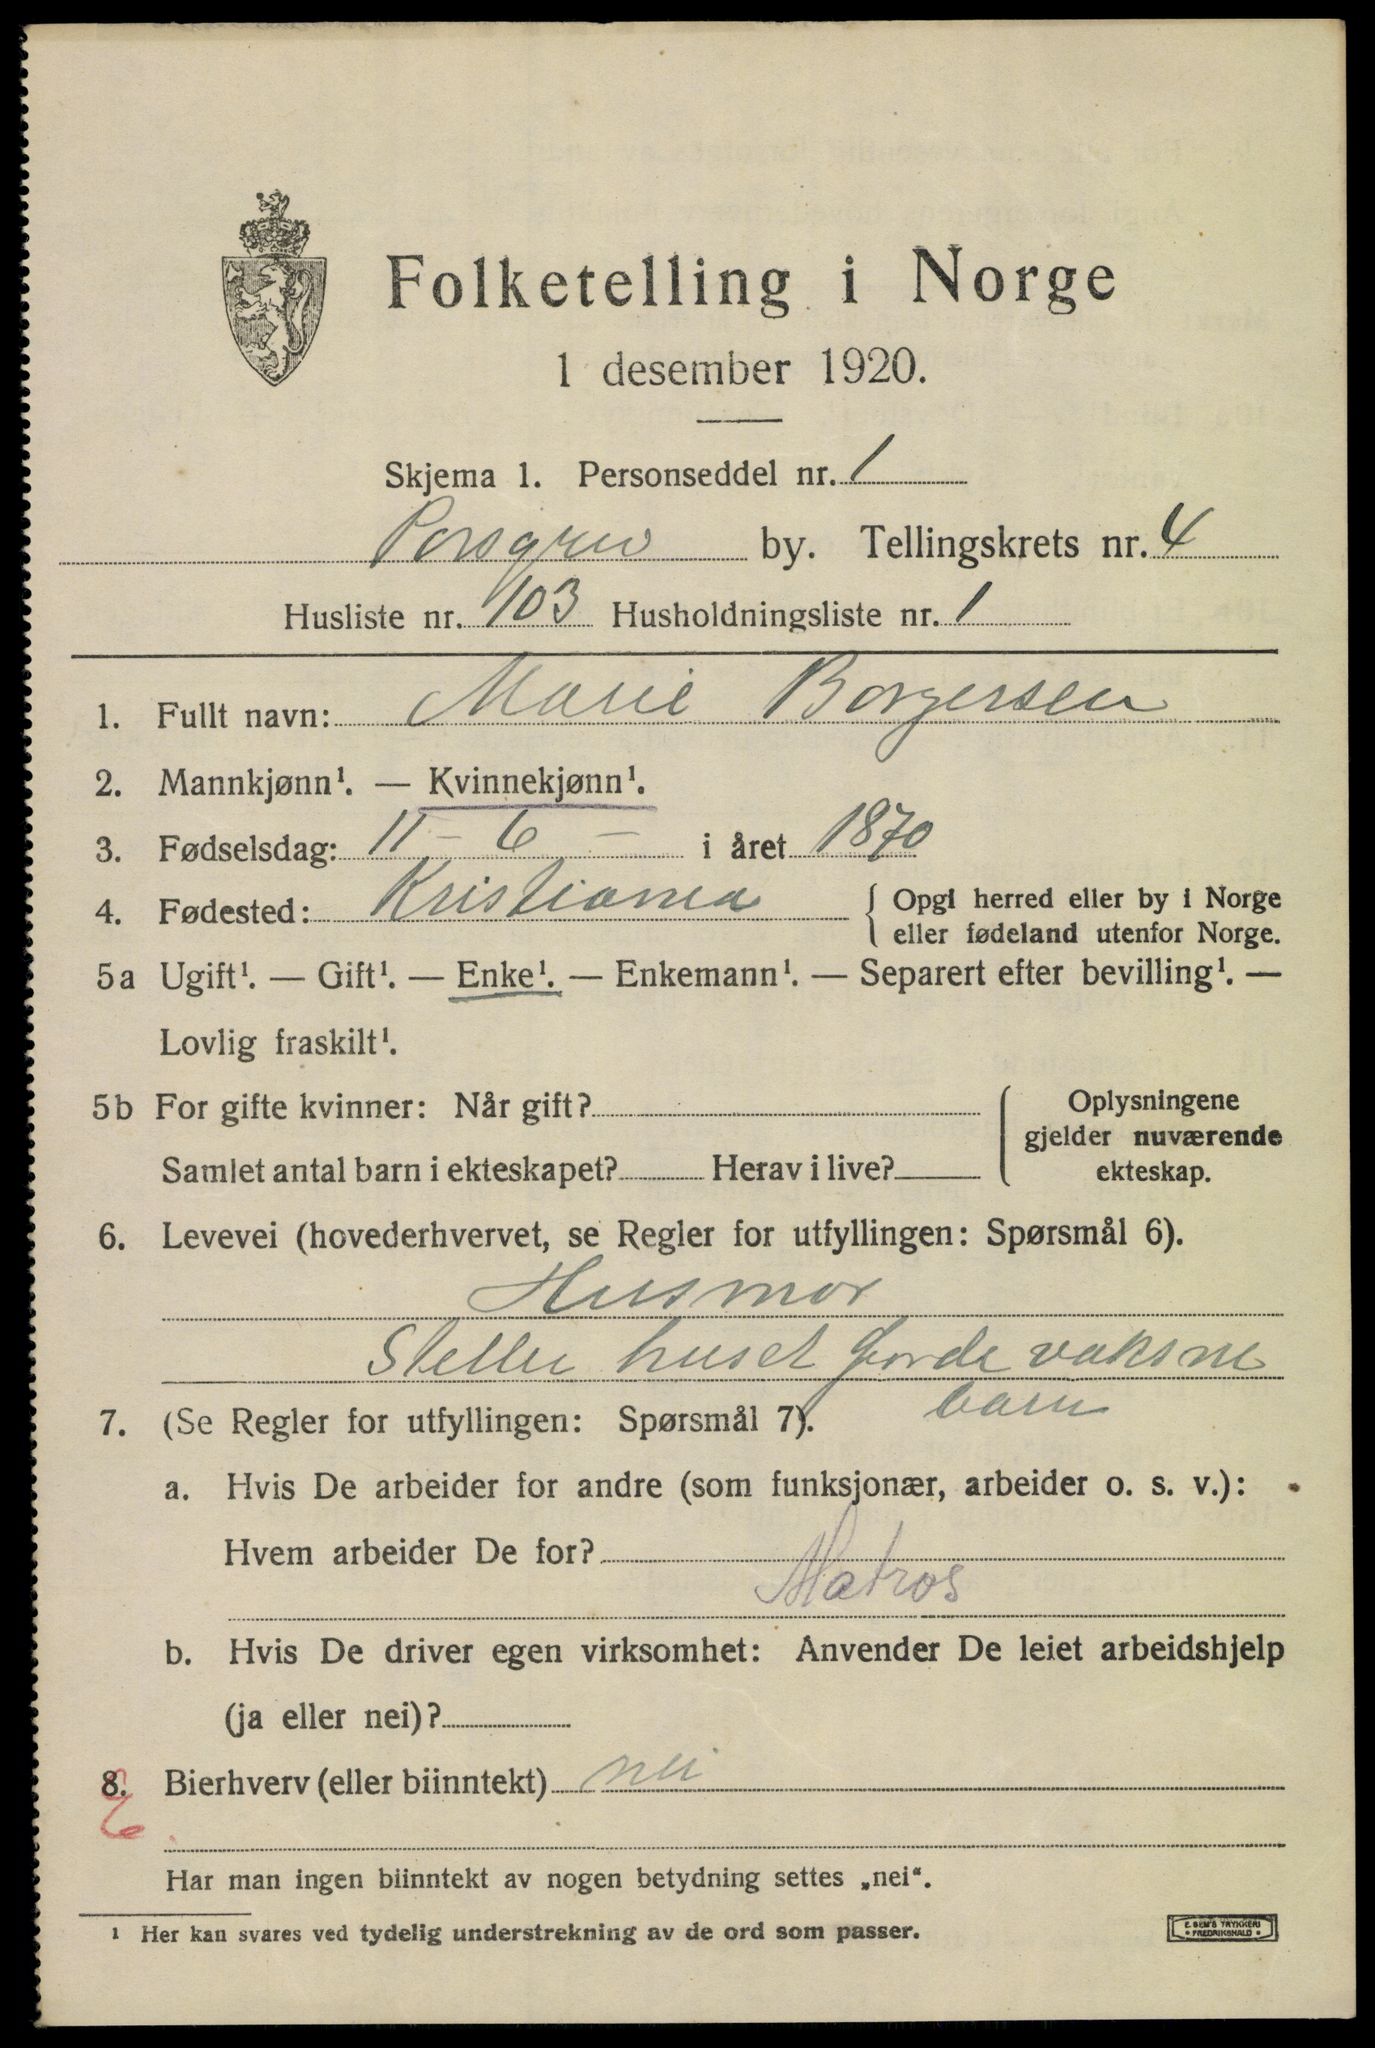 Folketelling i Norge
1 desember 1920.
Skjema 1. Personseddel nr. 1
Porsgrun by. Tellingskrets nr. 4
Husliste nr. 103 Husholdningsliste nr. 1
1. Fullt navn: Marie Borgersen
2. Mannkjønn¹. — Kvinnekjønn¹.
3. Fødselsdag: 11 - 6 - i året 1870
4. Fødested: Kristiania { Opgi herred eller by i Norge
eller fødeland utenfor Norge.
5a Ugift¹. — Gift¹. — Enke¹. — Enkemann¹. — Separert efter bevilling¹. —
Lovlig fraskilt¹.
5b For gifte kvinner: Når gift? { Oplysningene
gjelder nuværende
Samlet antal barn i ekteskapet? Herav i live? ekteskap.
6. Levevei (hovederhvervet, se Regler for utfyllingen: Spørsmål 6).
Husmor
Steller huset for de voksne
barn
7. (Se Regler for utfyllingen: Spørsmål 7).
a. Hvis De arbeider for andre (som funksjonær, arbeider o. s. v.):
Hvem arbeider De for?
Matros
b. Hvis De driver egen virksomhet: Anvender De leiet arbeidshjelp
(ja eller nei)?
8. Bierhverv (eller biinntekt) nei
Har man ingen biinntekt av nogen betydning settes „nei“.
¹ Her kan svares ved tydelig understrekning av de ord som passer.
E. SEM'S TRYKKERI
• FREDRIKSHALD •